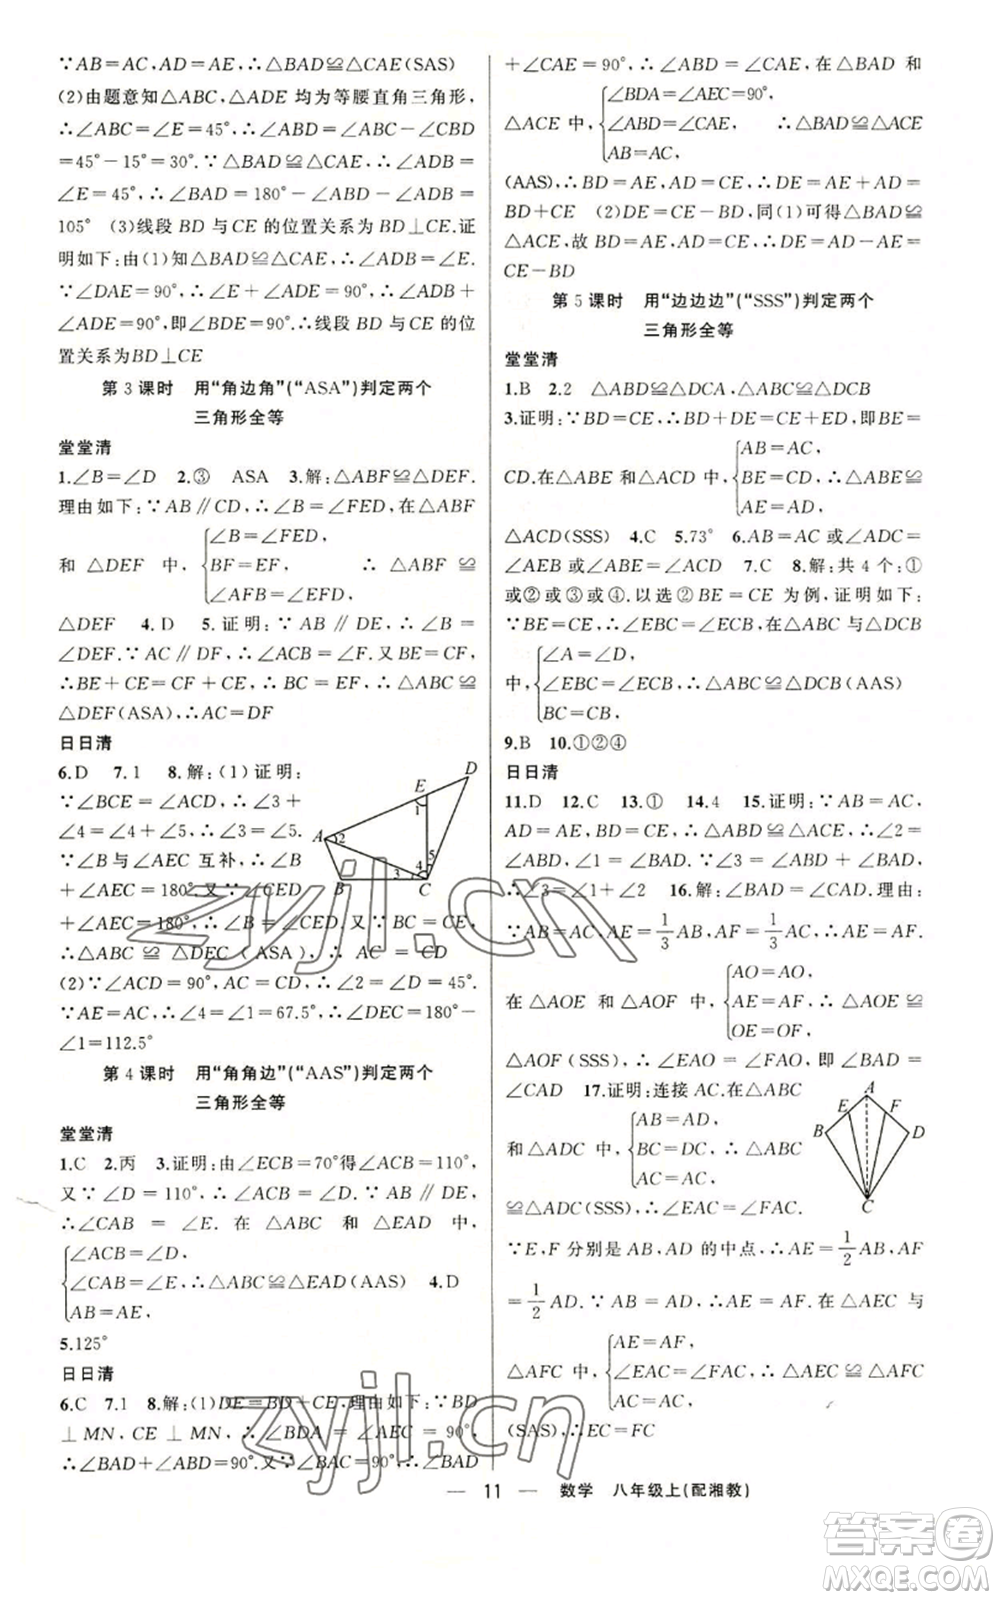 ∵AB=AC,AD=AE,∴△BAD≌△CAE(SAS)
(2)由题意知△ABC,△ADE 均为等腰直角三角形,
∴∠ABC=∠E=45°,∴∠ABD=∠ABC-∠CBD
=45°-15°=30°.∵△BAD≌△CAE,∴∠ADB=
∠E=45°,∴∠BAD=180°-∠ABD-∠ADB=
105° (3)线段 BD 与 CE 的位置关系为 BD⊥CE.证
明如下:由(1)知△BAD≌△CAE,∴∠ADB=∠E.
∵∠DAE=90°,∴∠E+∠ADE=90°,∴∠ADB+
∠ADE=90°,即∠BDE=90°∴线段 BD 与 CE 的位
置关系为BD⊥CE
第 3 课时 用“角边角”(“ASA”)判定两个
三角形全等
堂堂清
1.∠B=∠D 2.③ ASA 3.解:△ABF≌△DEF.
理由如下:∵AB∥CD,∴∠B=∠FED,在△ABF
∠B=∠FED,
和 △DEF 中, BF=EF, ∴ △ABF ≌
∠AFB=∠EFD,
△DEF 4.D 5.证明:∵AB∥DE,∴∠B=
∠DEF.∵AC∥DF,∴∠ACB=∠F.又∵BE=CF,
∴BE+CE=CF+CE,∴BC=EF,∴△ABC≌
△DEF(ASA),∴AC=DF
日日清
6.D 7.1 8.解:(1)证明:
∵∠BCE=∠ACD,∴∠3+
∠4=∠4+∠5,∴∠3=∠5.
∵∠B 与∠AEC 互补,∴∠B
+∠AEC=180°.又∵∠CED
+∠AEC=180°,
∴∠B=∠CED.又∵BC=CE,
∴△ABC≌△DEC(ASA),∴AC=CD
(2)∵∠ACD=90°,AC=CD,∴∠2=∠D=45°.
∵AE=AC,∴∠4=∠1=67.5°,∴∠DEC=180°-
∠1=112.5°
D
E
1
A
2
4
5
3
B
C
第 4 课时 用“角角边”(“AAS”)判定两个
三角形全等
堂堂清
1.C 2.丙 3.证明:由∠ECB=70°得∠ACB=110°,
又∵∠D=110°,∴∠ACB=∠D.∵AB∥DE,
∴∠CAB=∠E.在△ABC 和△EAD 中,
∠ACB=∠D,
∠CAB=∠E,∴△ABC≌△EAD(AAS) 4.D
AB=AE,
5.125°
日日清
6.C 7.1 8.解:(1)DE=BD+CE,理由如下:∵BD
⊥MN,CE⊥MN,∴∠BDA=∠AEC=90°,
∴∠BAD+∠ABD=90°.又∵∠BAC=90°,∴∠BAD
+∠CAE=90°,∴∠ABD=∠CAE,在△BAD 和
∠BDA=∠AEC=90°,
△ACE 中, ∠ABD=∠CAE, ∴△BAD≌△ACE
AB=AC,
(AAS),∴BD=AE,AD=CE,∴DE=AE+AD=
BD+CE (2)DE=CE-BD,同(1)可得△ABD≌
△ACE,故 BD=AE,AD=CE,∴DE=AD-AE=
CE-BD
第 5 课时 用“边边边”(“SSS”)判定两个
三角形全等
堂堂清
1.B 2.2 △ABD≌△DCA,△ABC≌△DCB
3.证明:∵BD=CE,∴BD+DE=CE+ED,即BE=
AB=AC,
CD.在△ABE 和△ACD 中, BE=CD, ∴△ABE≌
AE=AD,
△ACD(SSS) 4.C 5.73° 6.AB=AC或∠ADC=
∠AEB或∠ABE=∠ACD 7.C 8.解:共 4 个:①
或②或③或④.以选②BE=CE 为例,证明如下:
∵BE=CE,∴∠EBC=∠ECB,在△ABC与△DCB
∠A=∠D,
中, ∠EBC=∠ECB,∴△ABC≌△DCB(AAS)
BC=CB,
9.B 10.①②④
日日清
11.D 12.C 13.① 14.4 15.证明:∵AB=AC,
AD=AE,BD=CE,∴△ABD≌△ACE,∴∠2=
∠ABD,∠1=∠BAD.∵∠3=∠ABD+∠BAD,
∴∠3=∠1+∠2 16.解:∠BAD=∠CAD.理由:
∵AB=AC,AE=1/3AB,AF=1/3AC,∴AE=AF.
AO=AO,
在△AOE 和△AOF 中, AE=AF,∴△AOE≌
OE=OF,
△AOF(SSS),∴∠EAO=∠FAO,即∠BAD=
∠CAD 17.证明:连接 AC.在△ABC
AB=AD,
和△ADC 中, BC=DC,∴△ABC
AC=AC,
≌△ADC(SSS),∴∠EAC=∠FAC.
∵E,F 分别是 AB,AD 的中点,∴AE=1/2AB,AF
=1/2AD.∵AB=AD,∴AE=AF.在△AEC 与
AE=AF,
△AFC 中, ∠EAC=∠FAC,∴△AEC≌△AFC
AC=AC,
(SAS),∴EC=FC
A
E
F
B
D
C
— 11 — 数学 八年级上(配湘教)
zyjl.cn
zyjl.cn
答案圈
MXQE.COM